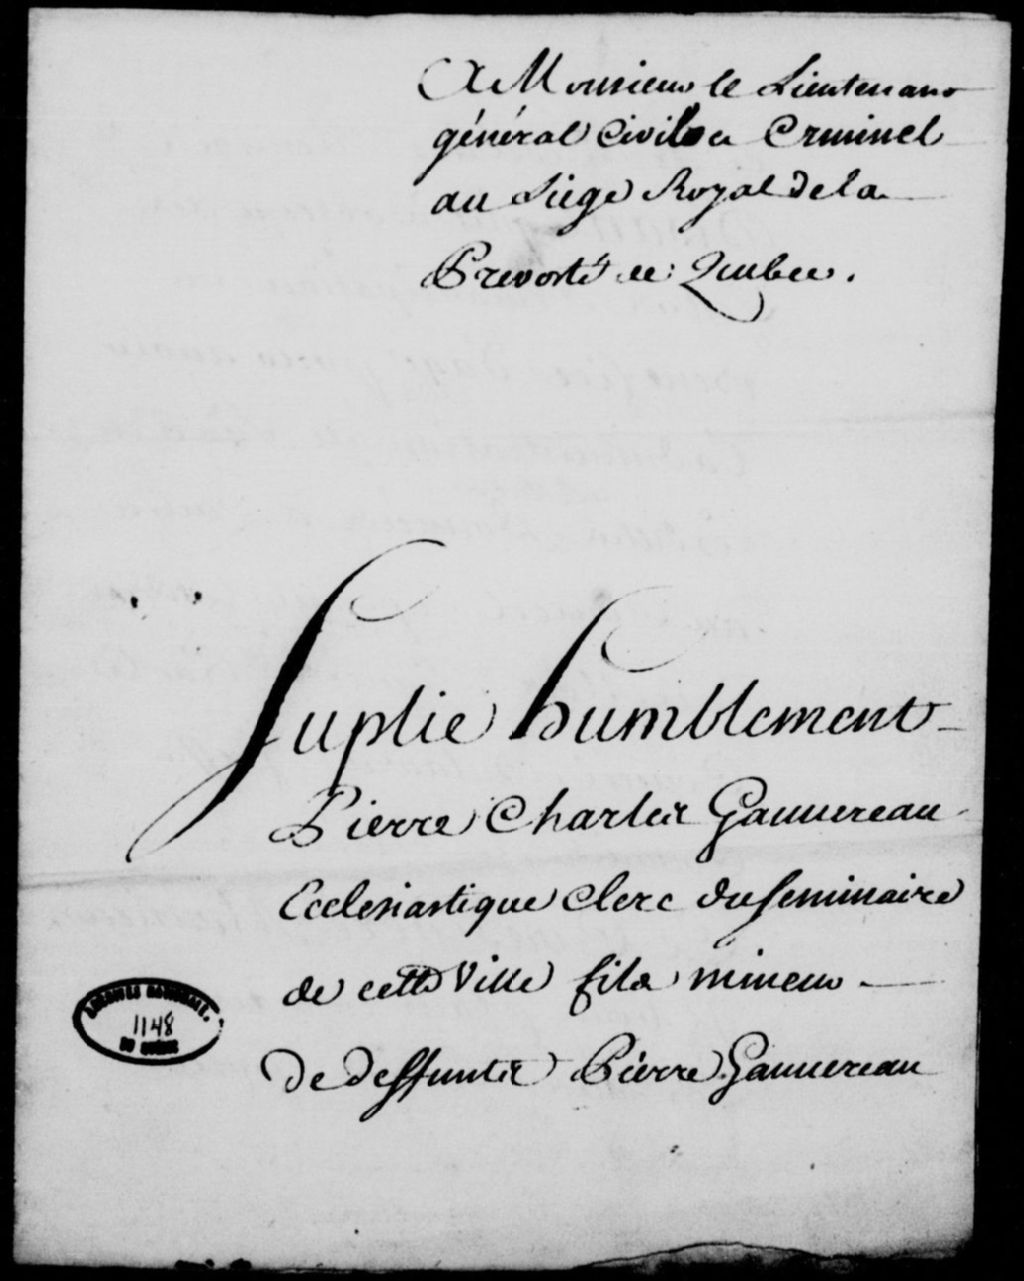 A Monsieur le Lieutenant
général Civil & Criminel
au Siege Royal de la
Prevosté de Quebec.
Suplie humblement
Pierre Charles Gauvereau
Ecclesiastique Clerc du Seminaire
de cette Ville fils mineur
de deffunts Pierre Gauvereau
ARCHIVES NATIONALES
1148
DU QUÉBEC